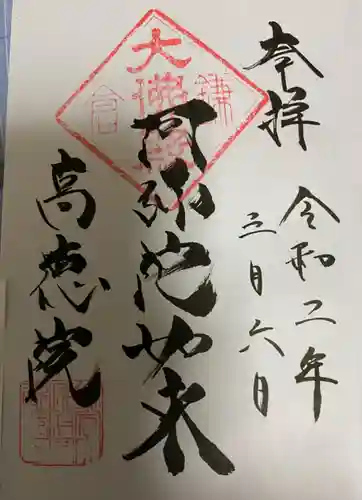 奉拝
令和二年
三月六日
阿弥陀如来
高徳院
大
鎌
倉